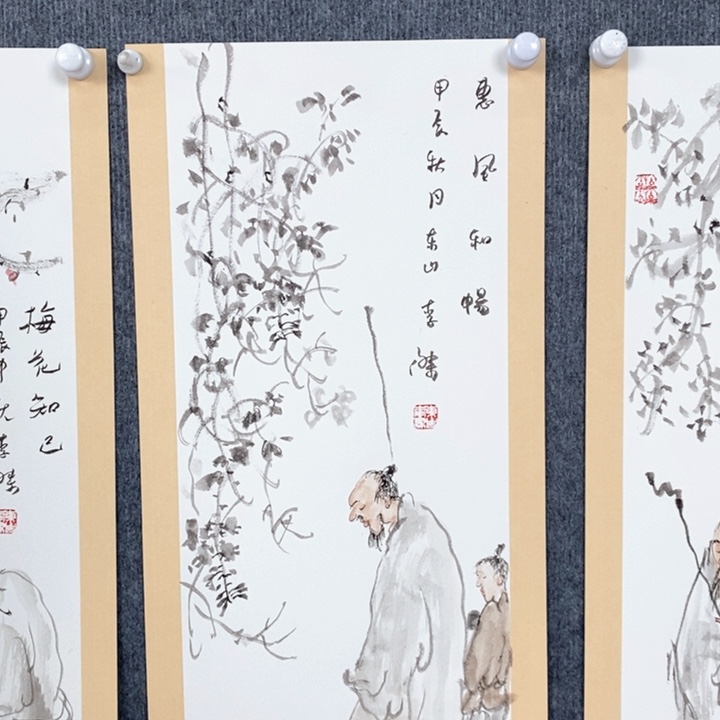 惠风和畅
甲辰秋月东山李杰
梅花知己
甲辰中秋李杰